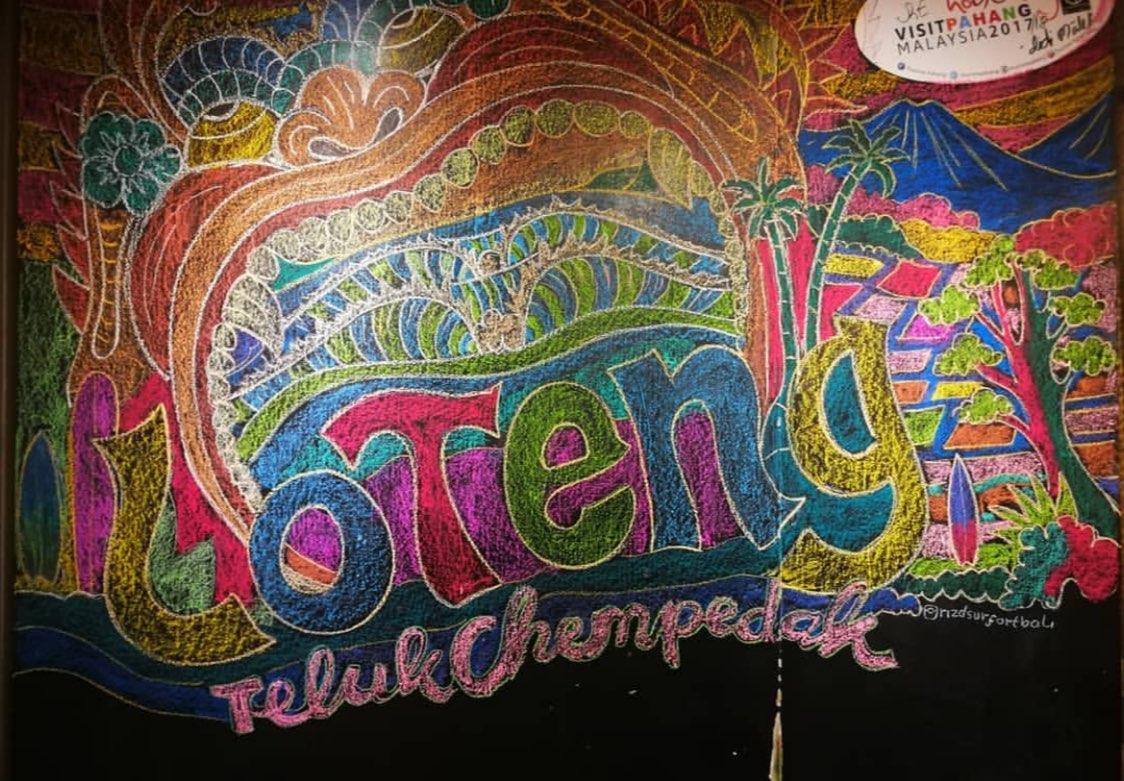 VISITPAHANG
MALAYSIA2017
LoTeng
Teluk Chempedak
@nzdsurfartbali